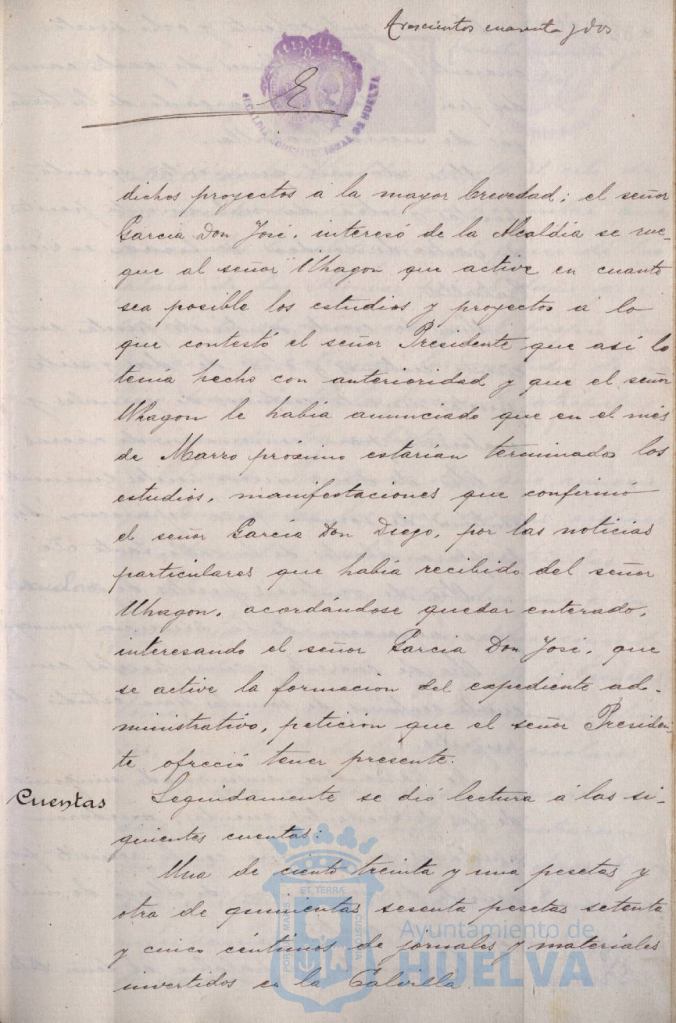 Trescientos cuarenta y dos
ALCALDIA CONSTITUCIONAL DE HUELVA
dichos proyectos á la mayor brevedad; el señor
Garcia Don José, interesó de la Alcaldía se rue-
gue al señor Uhagon que active en cuanto
sea posible los estudios y proyectos á lo
que contestó el señor Presidente que así lo
tenia hecho con anterioridad y que el señor
Uhagon le había anunciado que en el mes
de Marzo próximo estarían terminados los
estudios, manifestaciones que confirmó
el señor Garcia Don Diego, por las noticias
particulares que había recibido del señor
Uhagon, acordándose quedar enterado,
interesando el señor Garcia Don José, que
se active la formación del expediente ad-
ministrativo, petición que el señor Presiden-
te ofreció tener presente.
Cuentas
Seguidamente se dió lectura á las si-
guientes cuentas:
Una de ciento treinta y una pesetas y
otra de quinientas sesenta pesetas setenta
y cinco céntimos de jornales y materiales
invertidos en la Calvilla.
PORTUS MARIS ET TERRÆ CUSTODIA
Ayuntamiento de
HUELVA